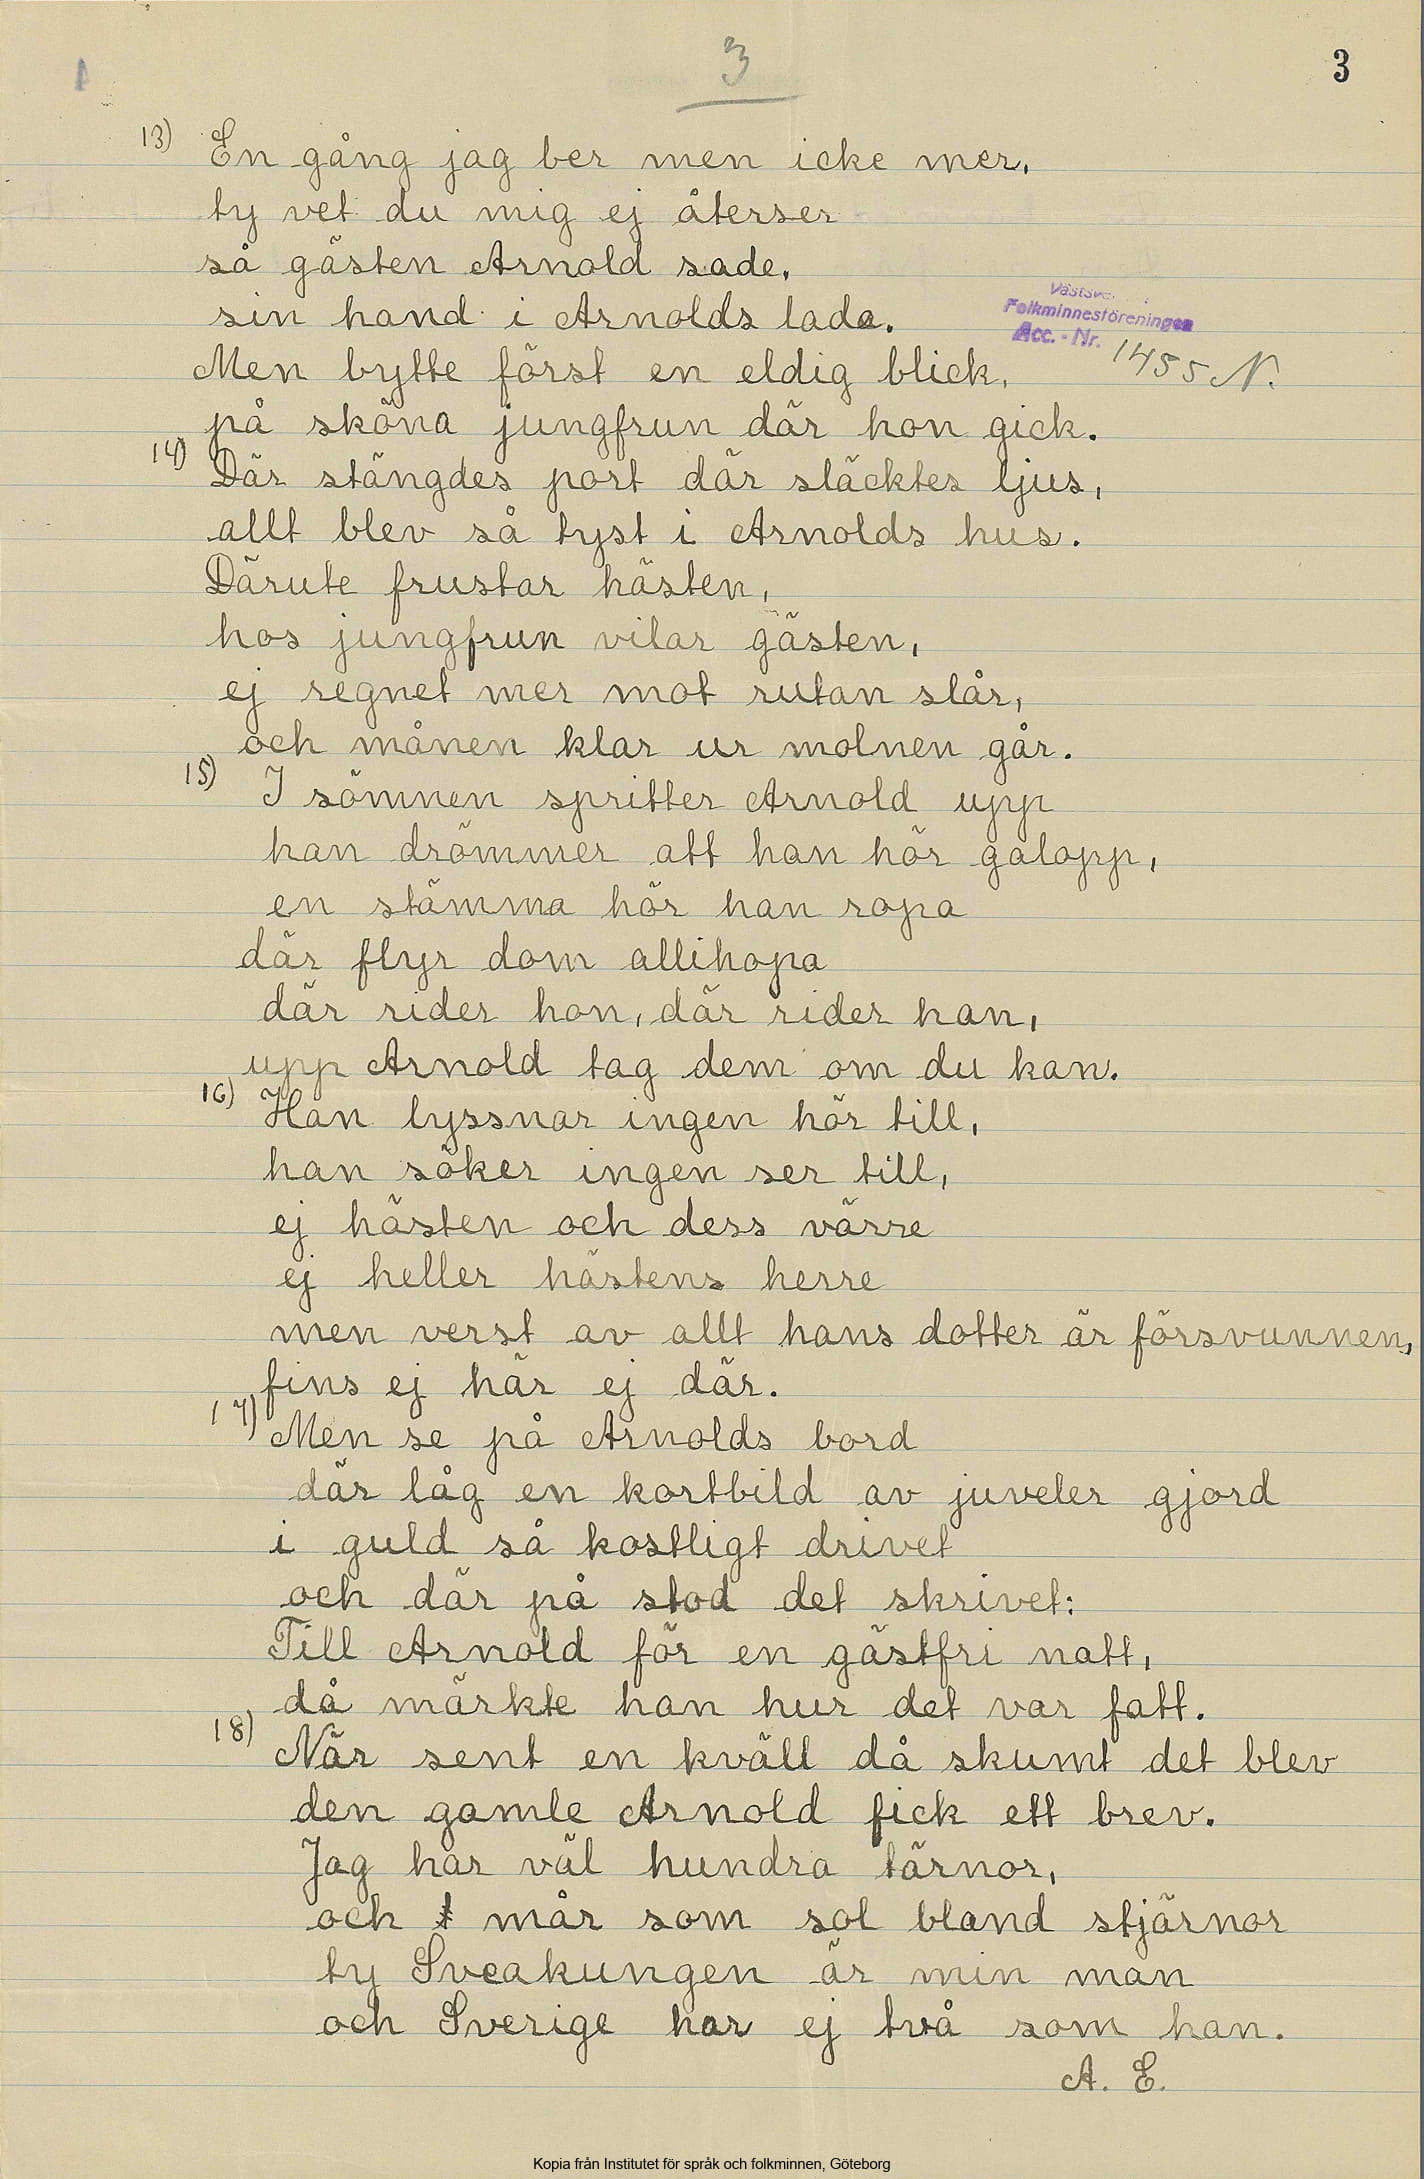 3
3
13) En gång jag ber men icke mer,
ty vet du mig ej återser
så gästen Arnold sade,
sin hand i Arnolds lada.
Västsv
Folkminnesföreningen
Acc. - Nr. 1455 N.
Men bytte först en eldig blick,
på sköna jungfrun där hon gick.
14) Där stängdes port där släcktes ljus,
allt blev så tyst i Arnolds hus.
Därute frustar hästen,
hos jungfrun vilar gästen,
ej regnet mer mot rutan slår,
och månen klar ur molnen går.
15) I sömnen spritter Arnold upp
han drömmer att han hör galopp,
en stämma hör han ropa
där flyr dom allihopa
där rider hon, där rider han,
upp Arnold tag dem om du kan.
16) Han lyssnar ingen hör till,
han söker ingen ser till,
ej hästen och dess värre
ej heller hästens herre
men verst av allt hans dotter är försvunnen,
fins ej här ej där.
17) Men se på Arnolds bord
där låg en kortbild av juveler gjord
i guld så kostligt drivet
och där på stod det skrivet:
Till Arnold för en gästfri natt,
då märkte han hur det var fatt.
18) När sent en kväll då skumt det blev
den gamle Arnold fick ett brev.
Jag har väl hundra tärnor,
och mår som sol bland stjärnor
ty Sveakungen är min man
och Sverige har ej två som han.
A. E.
Kopia från Institutet för språk och folkminnen, Göteborg